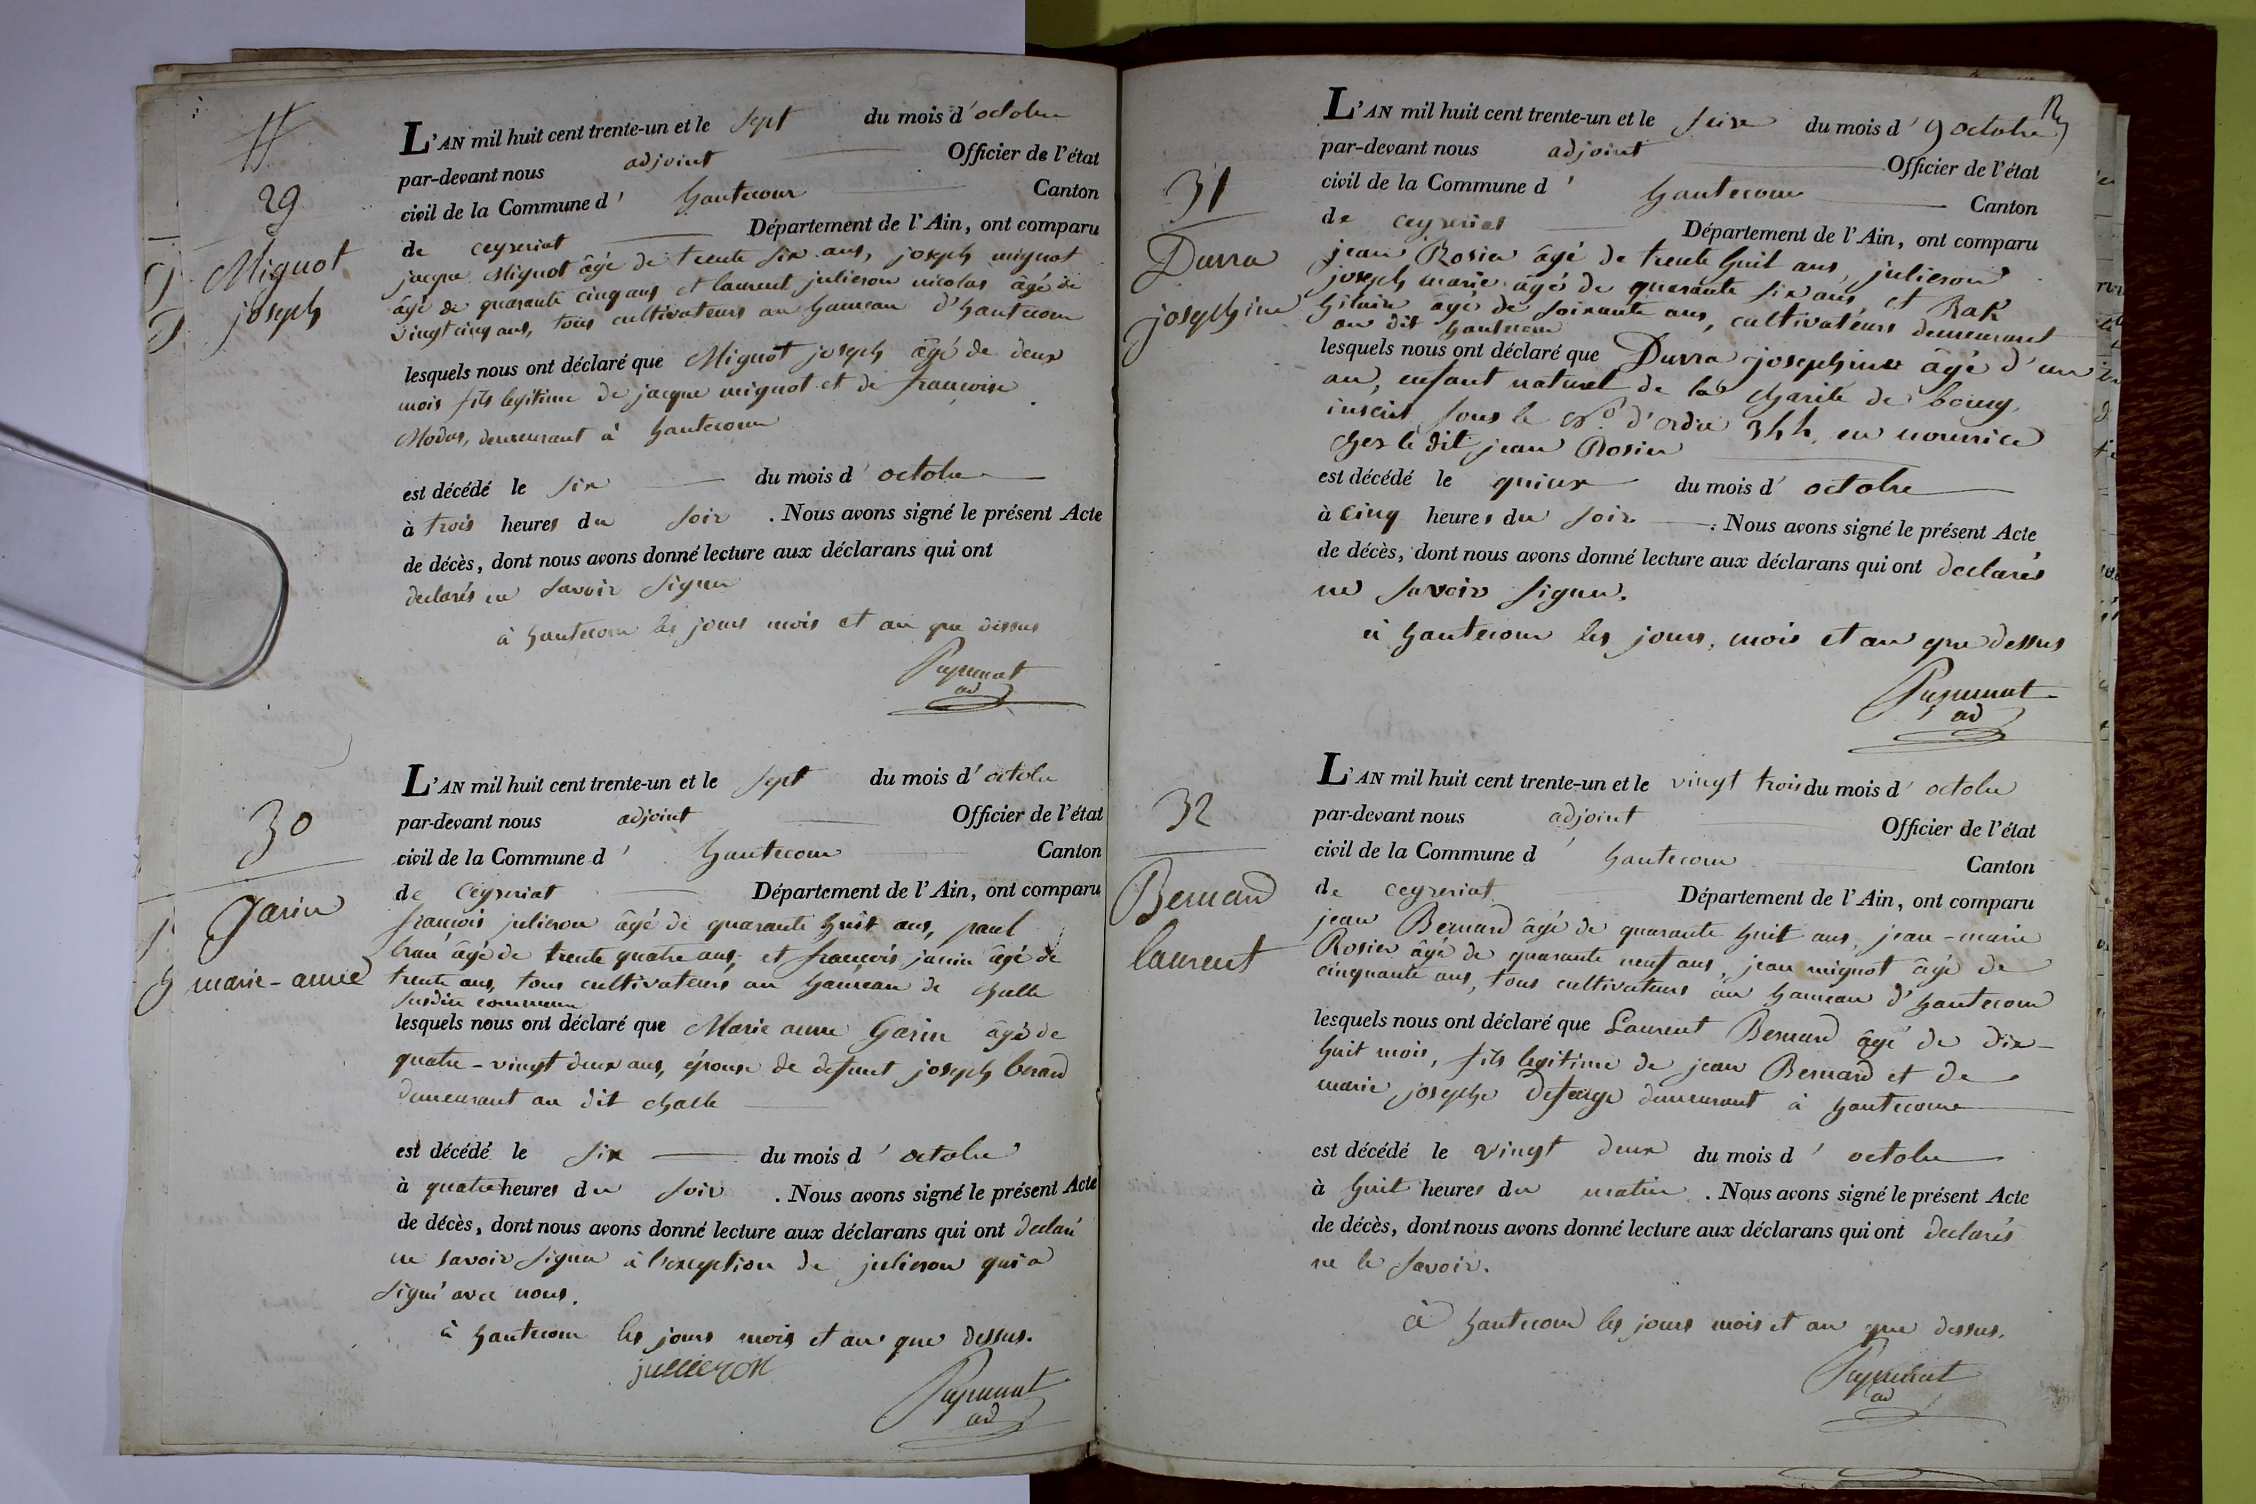 29
Mignot
joseph
L'AN mil huit cent trente-un et le sept du mois d'octobre
par-devant nous adjoint Officier de l'état
civil de la Commune d' hautecour Canton
de ceyzeriat Département de l'Ain, ont comparu
jacque Mignot âgé de trente six ans, joseph mignot
âgé de quarante cinq ans et laurent julieron nicolas âgé de
vingt cinq ans, tous cultivateurs au hameau d'hautecour
lesquels nous ont déclaré que Mignot joseph âgé de deux
mois fils legitime de jacque mignot et de françoise
Modas, demeurant à hautecour
est décédé le six du mois d'octobre
à trois heures du soir. Nous avons signé le présent Acte
de décès, dont nous avons donné lecture aux déclarans qui ont
declarés ne savoir signer
à hautecour les jours mois et an que dessus
ad
30
Garin
marie-anne
L'AN mil huit cent trente-un et le sept du mois d'octobre
par-devant nous adjoint Officier de l'état
civil de la Commune d' hautecour Canton
de ceyzeriat Département de l'Ain, ont comparu
françois julieron âgé de quarante huit ans, paul
âgé de trente quatre ans, et françois âgé de
trente ans, tous cultivateurs au hameau de challe
susdite commune
lesquels nous ont déclaré que Marie anne Garin âgé de
quatre-vingt deux ans, épouse de defunt joseph berard
demeurant au dit challe
est décédé le six du mois d'octobre
à quatre heures du soir. Nous avons signé le présent Acte
de décès, dont nous avons donné lecture aux déclarans qui ont declaré
ne savoir signer à l'exception de julieron qui a
signé avec nous.
à hautecour les jours mois et an que dessus.
jullieron
ad
31
Durra
josephine
L'AN mil huit cent trente-un et le seize du mois d' octobre
par-devant nous adjoint Officier de l'état
civil de la Commune d' hautecour Canton
de ceyzeriat Département de l'Ain, ont comparu
jean Rosier âgé de trente huit ans, julieron
joseph marie âgé de quarante six ans, et Rak
hilaire âgé de soixante ans, cultivateurs demeurant
au dit hautecour
lesquels nous ont déclaré que Durra josephine âgé d'un
an, enfant naturel de la charité de bourg,
inscrit sous le No. d'ordre 344, en nourrice
chez le dit jean Rosier
est décédé le quinze du mois d'octobre
à cinq heures du soir. Nous avons signé le présent Acte
de décès, dont nous avons donné lecture aux déclarans qui ont declarés
ne savoir signer.
à hautecour les jours, mois et an que dessus
ad
32
Bernard
laurent
L'AN mil huit cent trente-un et le vingt trois du mois d'octobre
par-devant nous adjoint Officier de l'état
civil de la Commune d' hautecour Canton
de ceyzeriat Département de l'Ain, ont comparu
jean Bernard âgé de quarante huit ans, jean-marie
Rosier âgé de quarante neuf ans, jean mignot âgé de
cinquante ans, tous cultivateurs au hameau d'hautecour
lesquels nous ont déclaré que Laurent Bernard âgé de dix-
huit mois, fils legitime de jean Bernard et de
marie josephe Deforge demeurant à hautecour
est décédé le vingt deux du mois d'octobre
à huit heures du matin. Nous avons signé le présent Acte
de décès, dont nous avons donné lecture aux déclarans qui ont declarés
ne le savoir.
à hautecour les jours mois et an que dessus.
ad